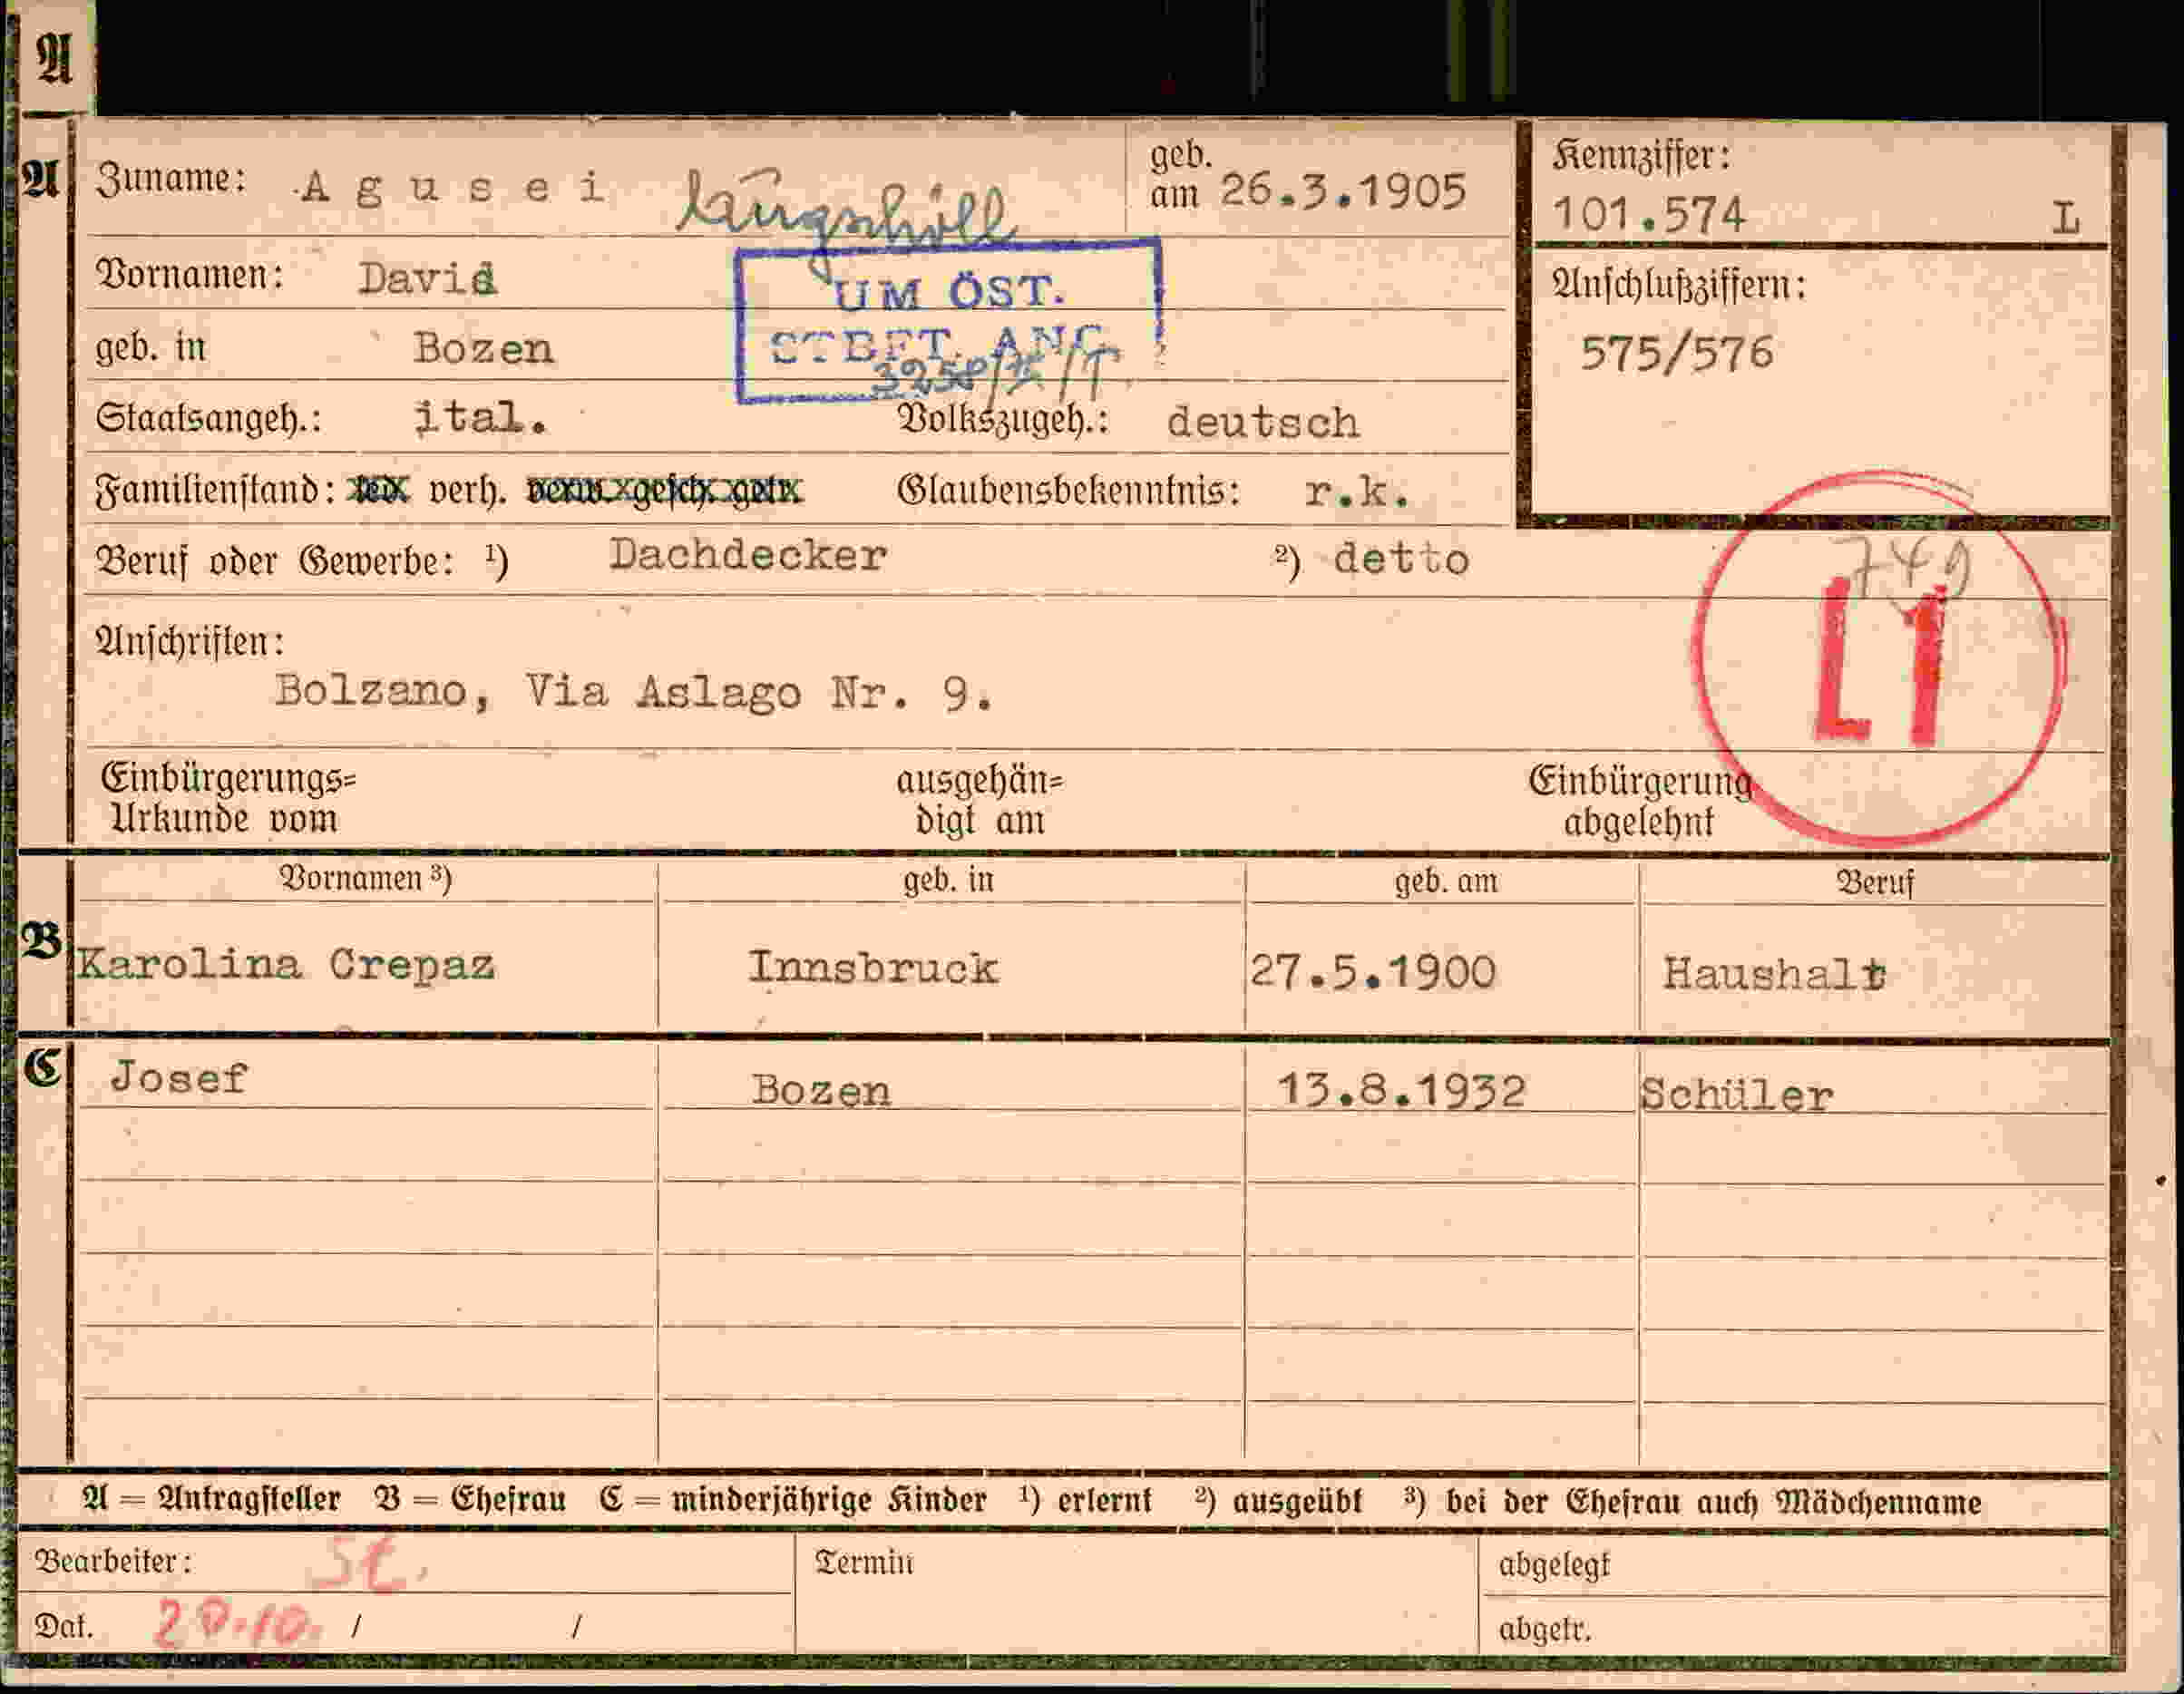 A
A Zuname: A g u s e i
geb. am 26.3.1905
Kennziffer:
101.574 L
Vornamen: David
UM ÖST.
Anschlußziffern:
geb. in Bozen
575/576
Staatsangeh.: ital. Volkszugeh.: deutsch
Familienstand: led. verh. verw. gesch. getr. Glaubensbekenntnis: r.k.
Beruf oder Gewerbe: ¹) Dachdecker ²) detto
749
L1
Anschriften:
Bolzano, Via Aslago Nr. 9.
Einbürgerungs= ausgehän= Einbürgerung
Urkunde vom digt am abgelehnt
Vornamen ³) geb. in geb. am Beruf
B Karolina Crepaz Innsbruck 27.5.1900 Haushalt
C Josef Bozen 13.8.1932 Schüler
A = Antragsteller B = Ehefrau C = minderjährige Kinder ¹) erlernt ²) ausgeübt ³) bei der Ehefrau auch Mädchenname
Bearbeiter: Termin abgelegt
Dat. / / abgetr.